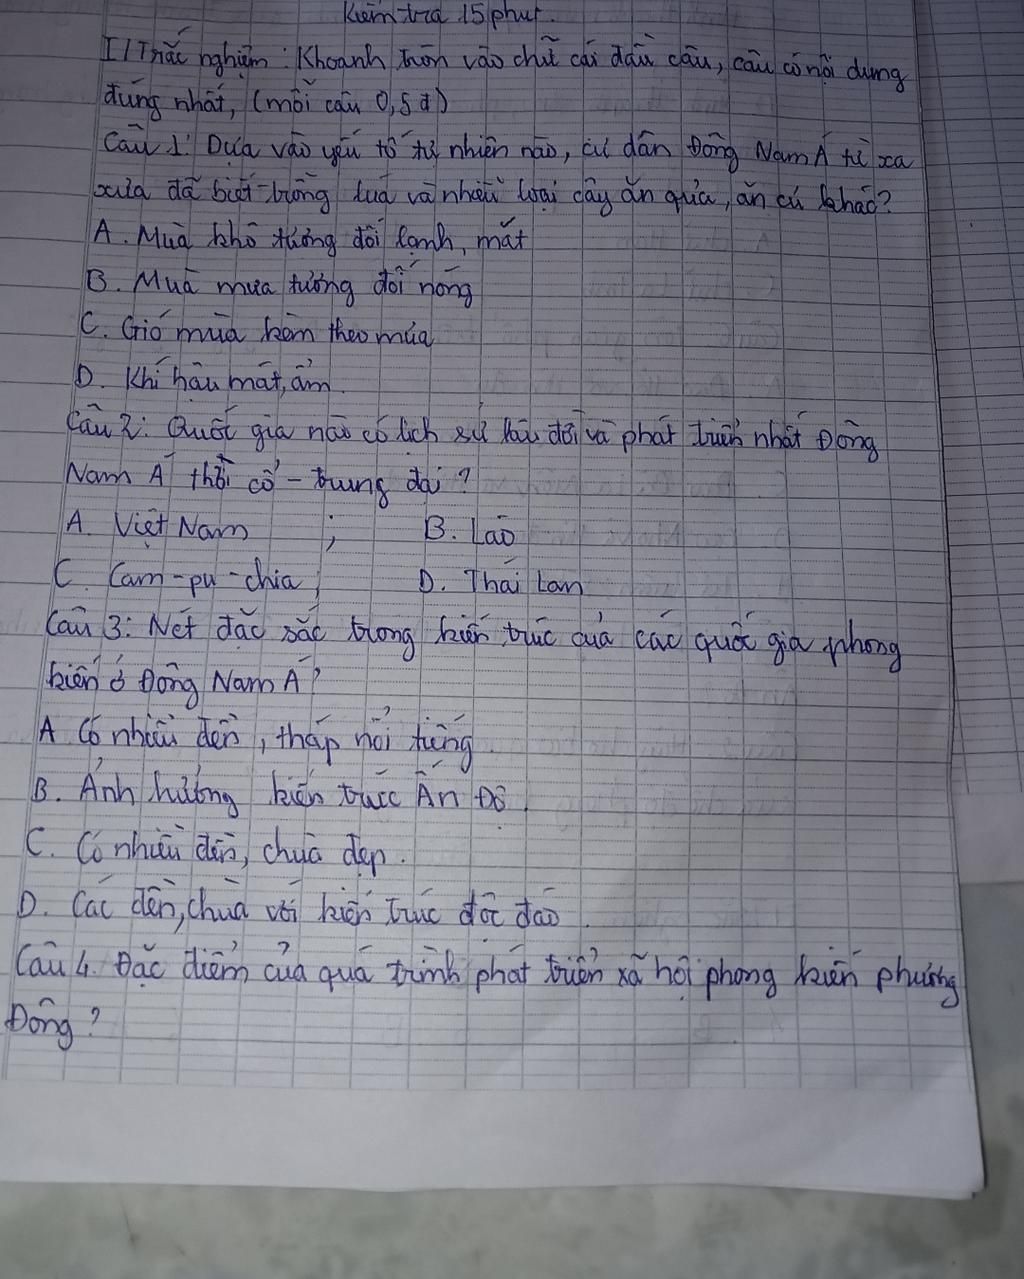 Kiểm tra 15 phút.
I/ Trắc nghiệm: Khoanh tròn vào chữ cái đầu câu, câu có nội dung
đúng nhất, (mỗi câu 0,5 đ)
Câu 1: Dựa vào yếu tố tự nhiên nào, cư dân Đông Nam Á từ xa
xưa đã biết trồng lúa và nhiều loại cây ăn quả, ăn củ khác?
A. Mùa khô tương đối lạnh, mát
B. Mùa mưa tương đối nóng
C. Gió mùa kèm theo mưa
D. Khí hậu mát, ẩm.
Câu 2: Quốc gia nào có lịch sử lâu đời và phát triển nhất Đông
Nam Á thời cổ - trung đại?
A. Việt Nam ; B. Lào
C. Cam-pu-chia ; D. Thái Lan
Câu 3: Nét đặc sắc trong kiến trúc của các quốc gia phong
kiến ở Đông Nam Á?
A Có nhiều đền, tháp nổi tiếng
B. Ảnh hưởng kiến trúc Ấn Độ.
C. Có nhiều đền, chùa đẹp.
D. Các đền, chùa với kiến trúc độc đáo.
Câu 4. Đặc điểm của quá trình phát triển xã hội phong kiến phương
Đông?